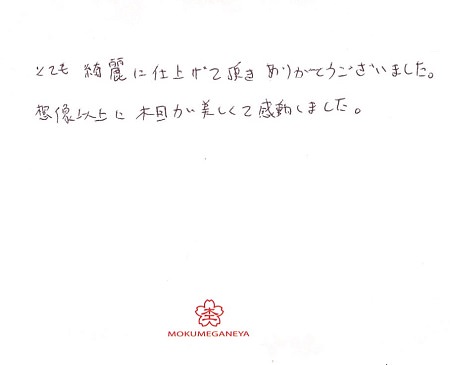 とても 綺麗に仕上げて頂き ありがとうございました。
想像以上に 木目が美しくて感動しました。
MOKUMEGANEYA